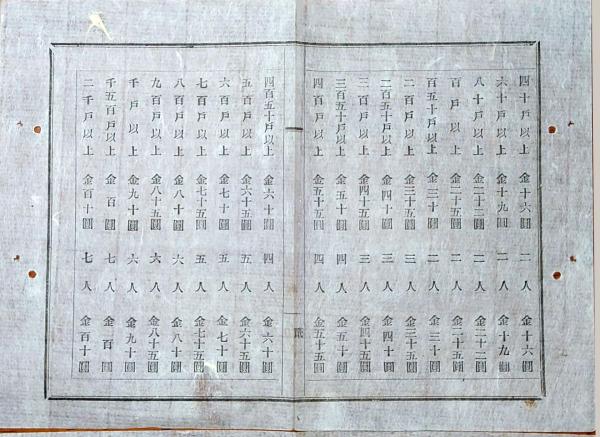 四十戸以上 金十六圓 二人 金十六圓
六十戸以上 金十九圓 二人 金十九圓
八十戸以上 金二十二圓 二人 金二十二圓
百戸以上 金二十五圓 二人 金二十五圓
百五十戸以上 金三十圓 二人 金三十圓
二百戸以上 金三十五圓 三人 金三十五圓
二百五十戸以上 金四十圓 三人 金四十圓
三百戸以上 金四十五圓 三人 金四十五圓
三百五十戸以上 金五十圓 四人 金五十圓
四百戸以上 金五十五圓 四人 金五十五圓
四百五十戸以上 金六十圓 四人 金六十圓
五百戸以上 金六十五圓 五人 金六十五圓
六百戸以上 金七十圓 五人 金七十圓
七百戸以上 金七十五圓 五人 金七十五圓
八百戸以上 金八十圓 六人 金八十圓
九百戸以上 金八十五圓 六人 金八十五圓
千戸以上 金九十圓 六人 金九十圓
千五百戸以上 金百圓 七人 金百圓
二千戸以上 金百十圓 七人 金百十圓